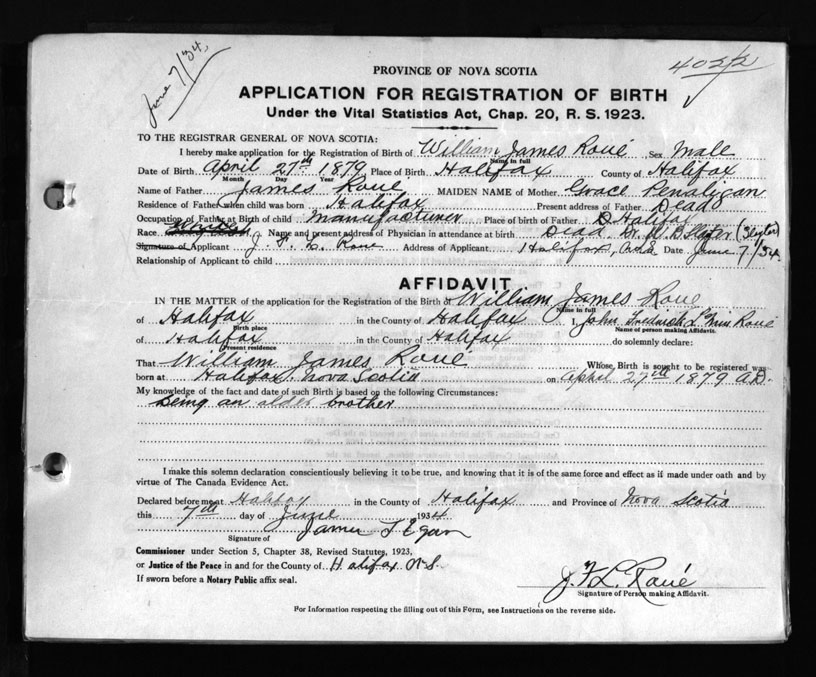 June 7/34,
40212
PROVINCE OF NOVA SCOTIA
APPLICATION FOR REGISTRATION OF BIRTH
Under the Vital Statistics Act, Chap. 20, R. S. 1923.
TO THE REGISTRAR GENERAL OF NOVA SCOTIA:
I hereby make application for the Registration of Birth of William James Roué Sex Male
Name in full
Date of Birth April 27th 1879 Place of Birth Halifax County of Halifax
Month Day Year
Name of Father James Roue MAIDEN NAME of Mother Grace Penalican
Residence of Father when child was born Halifax Present address of Father Dead
Occupation of Father at Birth of child Manufacturer Place of birth of Father Halifax
Race Name and present address of Physician in attendance at birth Dead Dr. W. B. Slayter (Slayter)
Signature of Applicant J. F. L. Roue Address of Applicant Halifax, N.S. Date June 7/34.
Relationship of Applicant to child
AFFIDAVIT
IN THE MATTER of the application for the Registration of the Birth of William James Roué
Name in full
of Halifax in the County of Halifax I, John Fredrick Roué
Birth place Name of person making Affidavit.
of Halifax in the County of Halifax do solemnly declare:
Present residence
That William James Roué Whose, Birth is sought to be registered was
born at Halifax, Nova Scotia on April 27th 1879 A.D.
My knowledge of the fact and date of such Birth is based on the following Circumstances:
Being an older brother
I make this solemn declaration conscientiously believing it to be true, and knowing that it is of the same force and effect as if made under oath and by
virtue of The Canada Evidence Act.
Declared before me at Halifax in the County of Halifax and Province of Nova Scotia
this 7th day of June 1934
Signature of James T Egan
Commissioner under Section 5, Chapter 38, Revised Statutes, 1923,
or Justice of the Peace in and for the County of Halifax N.S.
If sworn before a Notary Public affix seal.
J. F. L. Roué
Signature of Person making Affidavit.
For Information respecting the filling out of this Form, see Instructions on the reverse side.